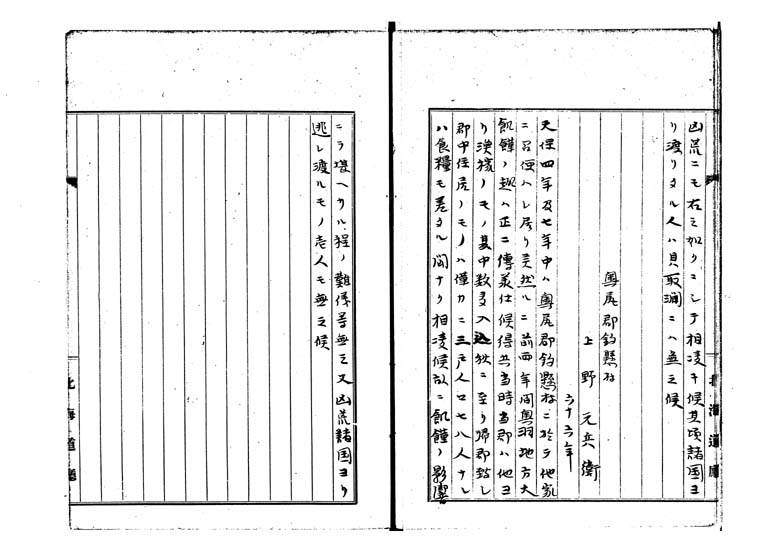 凶荒ニモ右之如クニシテ相凌キ候其頃諸国ヨ
リ渡リタル人ハ貝取澗ニハ無之候
奥尻郡釣懸村
上野元兵衛
六十六年
天保四年及七年中ハ奥尻郡釣懸村ニ於テ他家
ニ召使ハレ居リ然ルニ前両年間奥羽地方大
飢饉ノ趣ハ正ニ傳承仕候得共当時当郡ハ他ヨ
リ漁猟ノモノ夏中数多入込秋ニ至リ帰郡致シ
郡中住居ノモノハ僅カニ三戸人口七八人ナレ
ハ食糧モ差タル関ナク相凌候故ニ飢饉ノ影響
ニテ堪ヘサル程ノ難係等無之又凶荒諸国ヨリ
逃レ渡ルモノ壱人モ無之候
北海道庁
北海道庁